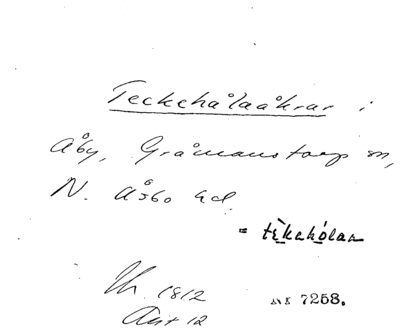 Teckchålaåkrar i
Åby, Gråmanstorp sn,
N. Åsbo hd.
= tèkakólaa
Uh. 1812
Akt 12
7258.